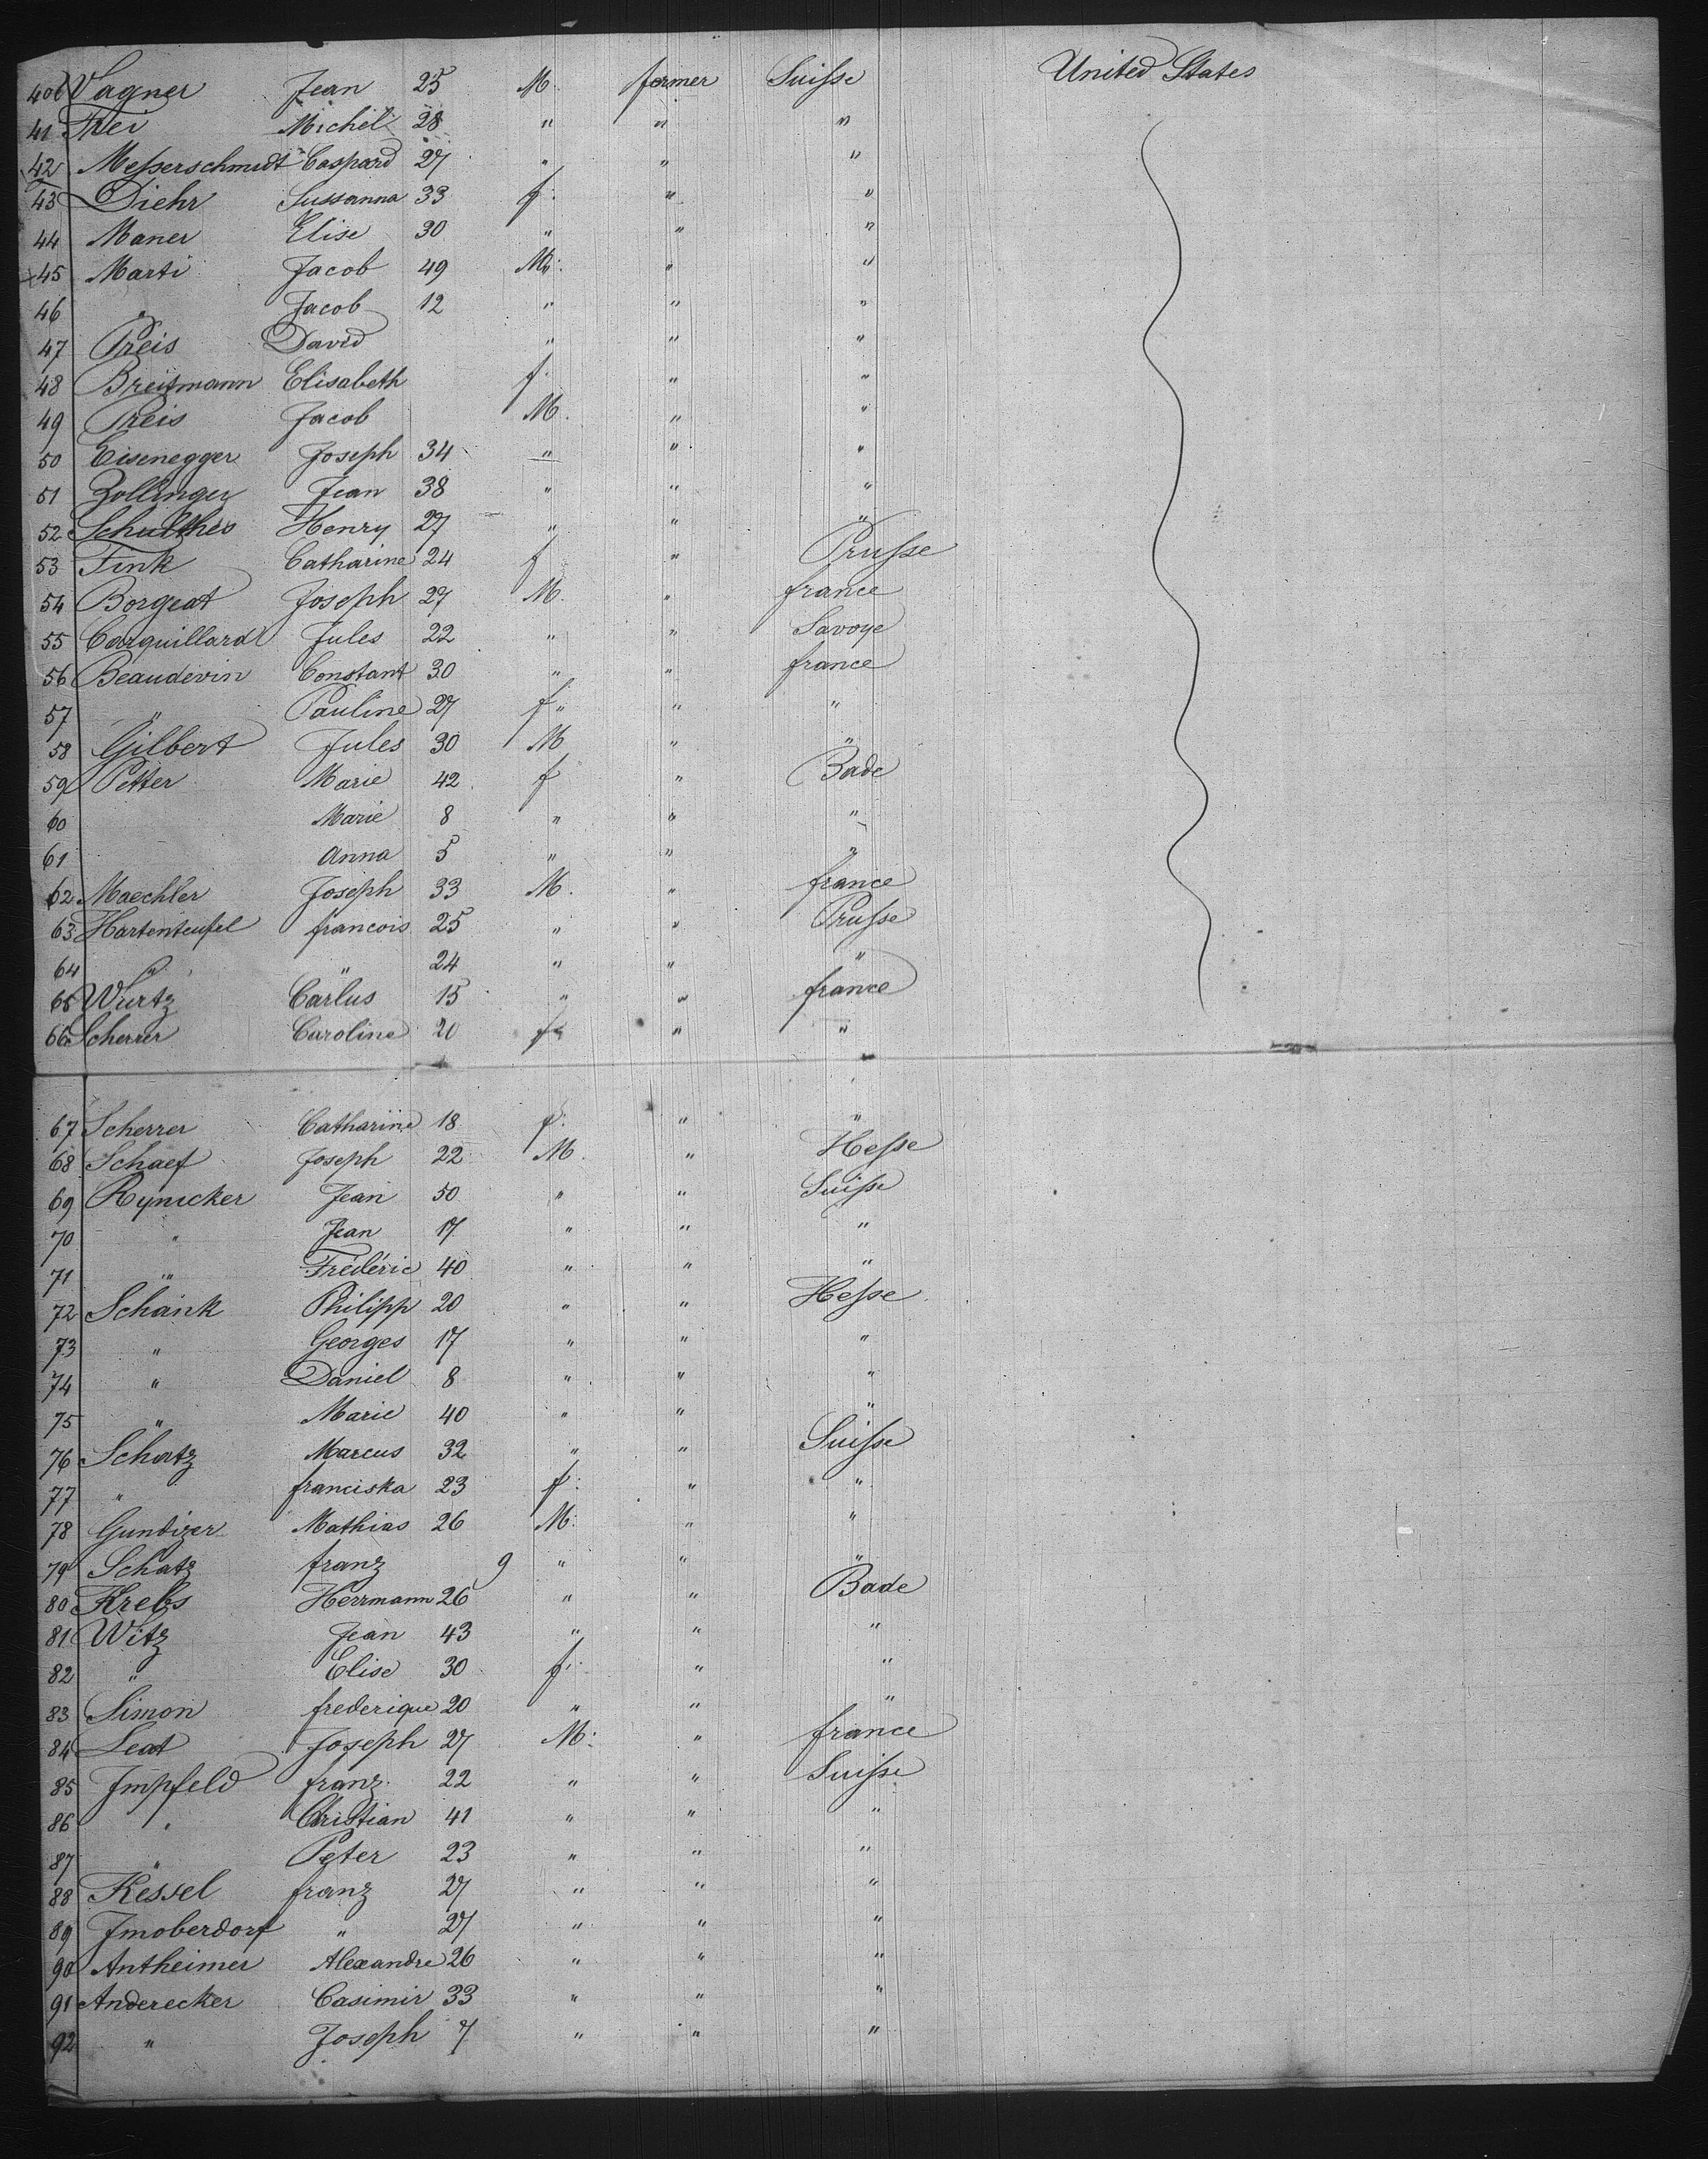 40 Vagner Jean 25 M. farmer Suisse United States
41 Frei Michel 28 " " "
42 Messerschmidt Caspard 27 " " "
43 Diehr Sussanna 33 f: " "
44 Maner Elise 30 " " "
45 Marti Jacob 49 M: " "
46 " Jacob 12 " " "
47 Preis David " " "
48 Breitmann Elisabeth f. " "
49 Preis Jacob M. " "
50 Eisenegger Joseph 34 " " "
51 Zollinger Jean 38 " " "
52 Schulthes Henry 27 " " "
53 Fink Catharine 24 f " Prusse
54 Borgeat Joseph 27 M. " france
55 Carquillard Jules 22 " " Savoye
56 Beaudevin Constant 30 " " france
57 " Pauline 27 f " "
58 Gilbert Jules 30 M " "
59 Petter Marie 42 f " Bade
60 Marie 8 " " "
61 Anna 5 " " "
62 Maechler Joseph 33 M. " france
63 Hartenteufel francois 25 " " Prusse
64 " " 24 " " "
65 Wurtz Carlus 15 " " france
66 Scherrer Caroline 20 f " "
67 Scherrer Catharine 18 f: " "
68 Schaef Joseph 22 M. " Hesse
69 Rynicker Jean 50 " " Suisse
70 " Jean 17 " " "
71 " Fréderic 40 " " "
72 Schank Philipp 20 " " Hesse
73 " Georges 17 " " "
74 " Daniel 8 " " "
75 " Marie 40 " " "
76 Schatz Marcus 32 " " Suisse
77 " franciska 23 f: " "
78 Gundizer Mathias 26 M: " "
79 Schatz franz 9 " " "
80 Krebs Herrmann 26 " " Bade
81 Witz Jean 43 " " "
82 " Elise 30 f: " "
83 Simon frederique 20 " " "
84 Leat Joseph 27 M: " france
85 Jmpfeld franz 22 " " Suisse
86 " Christian 41 " " "
87 " Peter 23 " " "
88 Kessel franz 27 " " "
89 Jmoberdorf " 27 " " "
90 Antheimer Alexandre 26 " " "
91 Anderecker Casimir 33 " " "
92 " Joseph 7 " " "